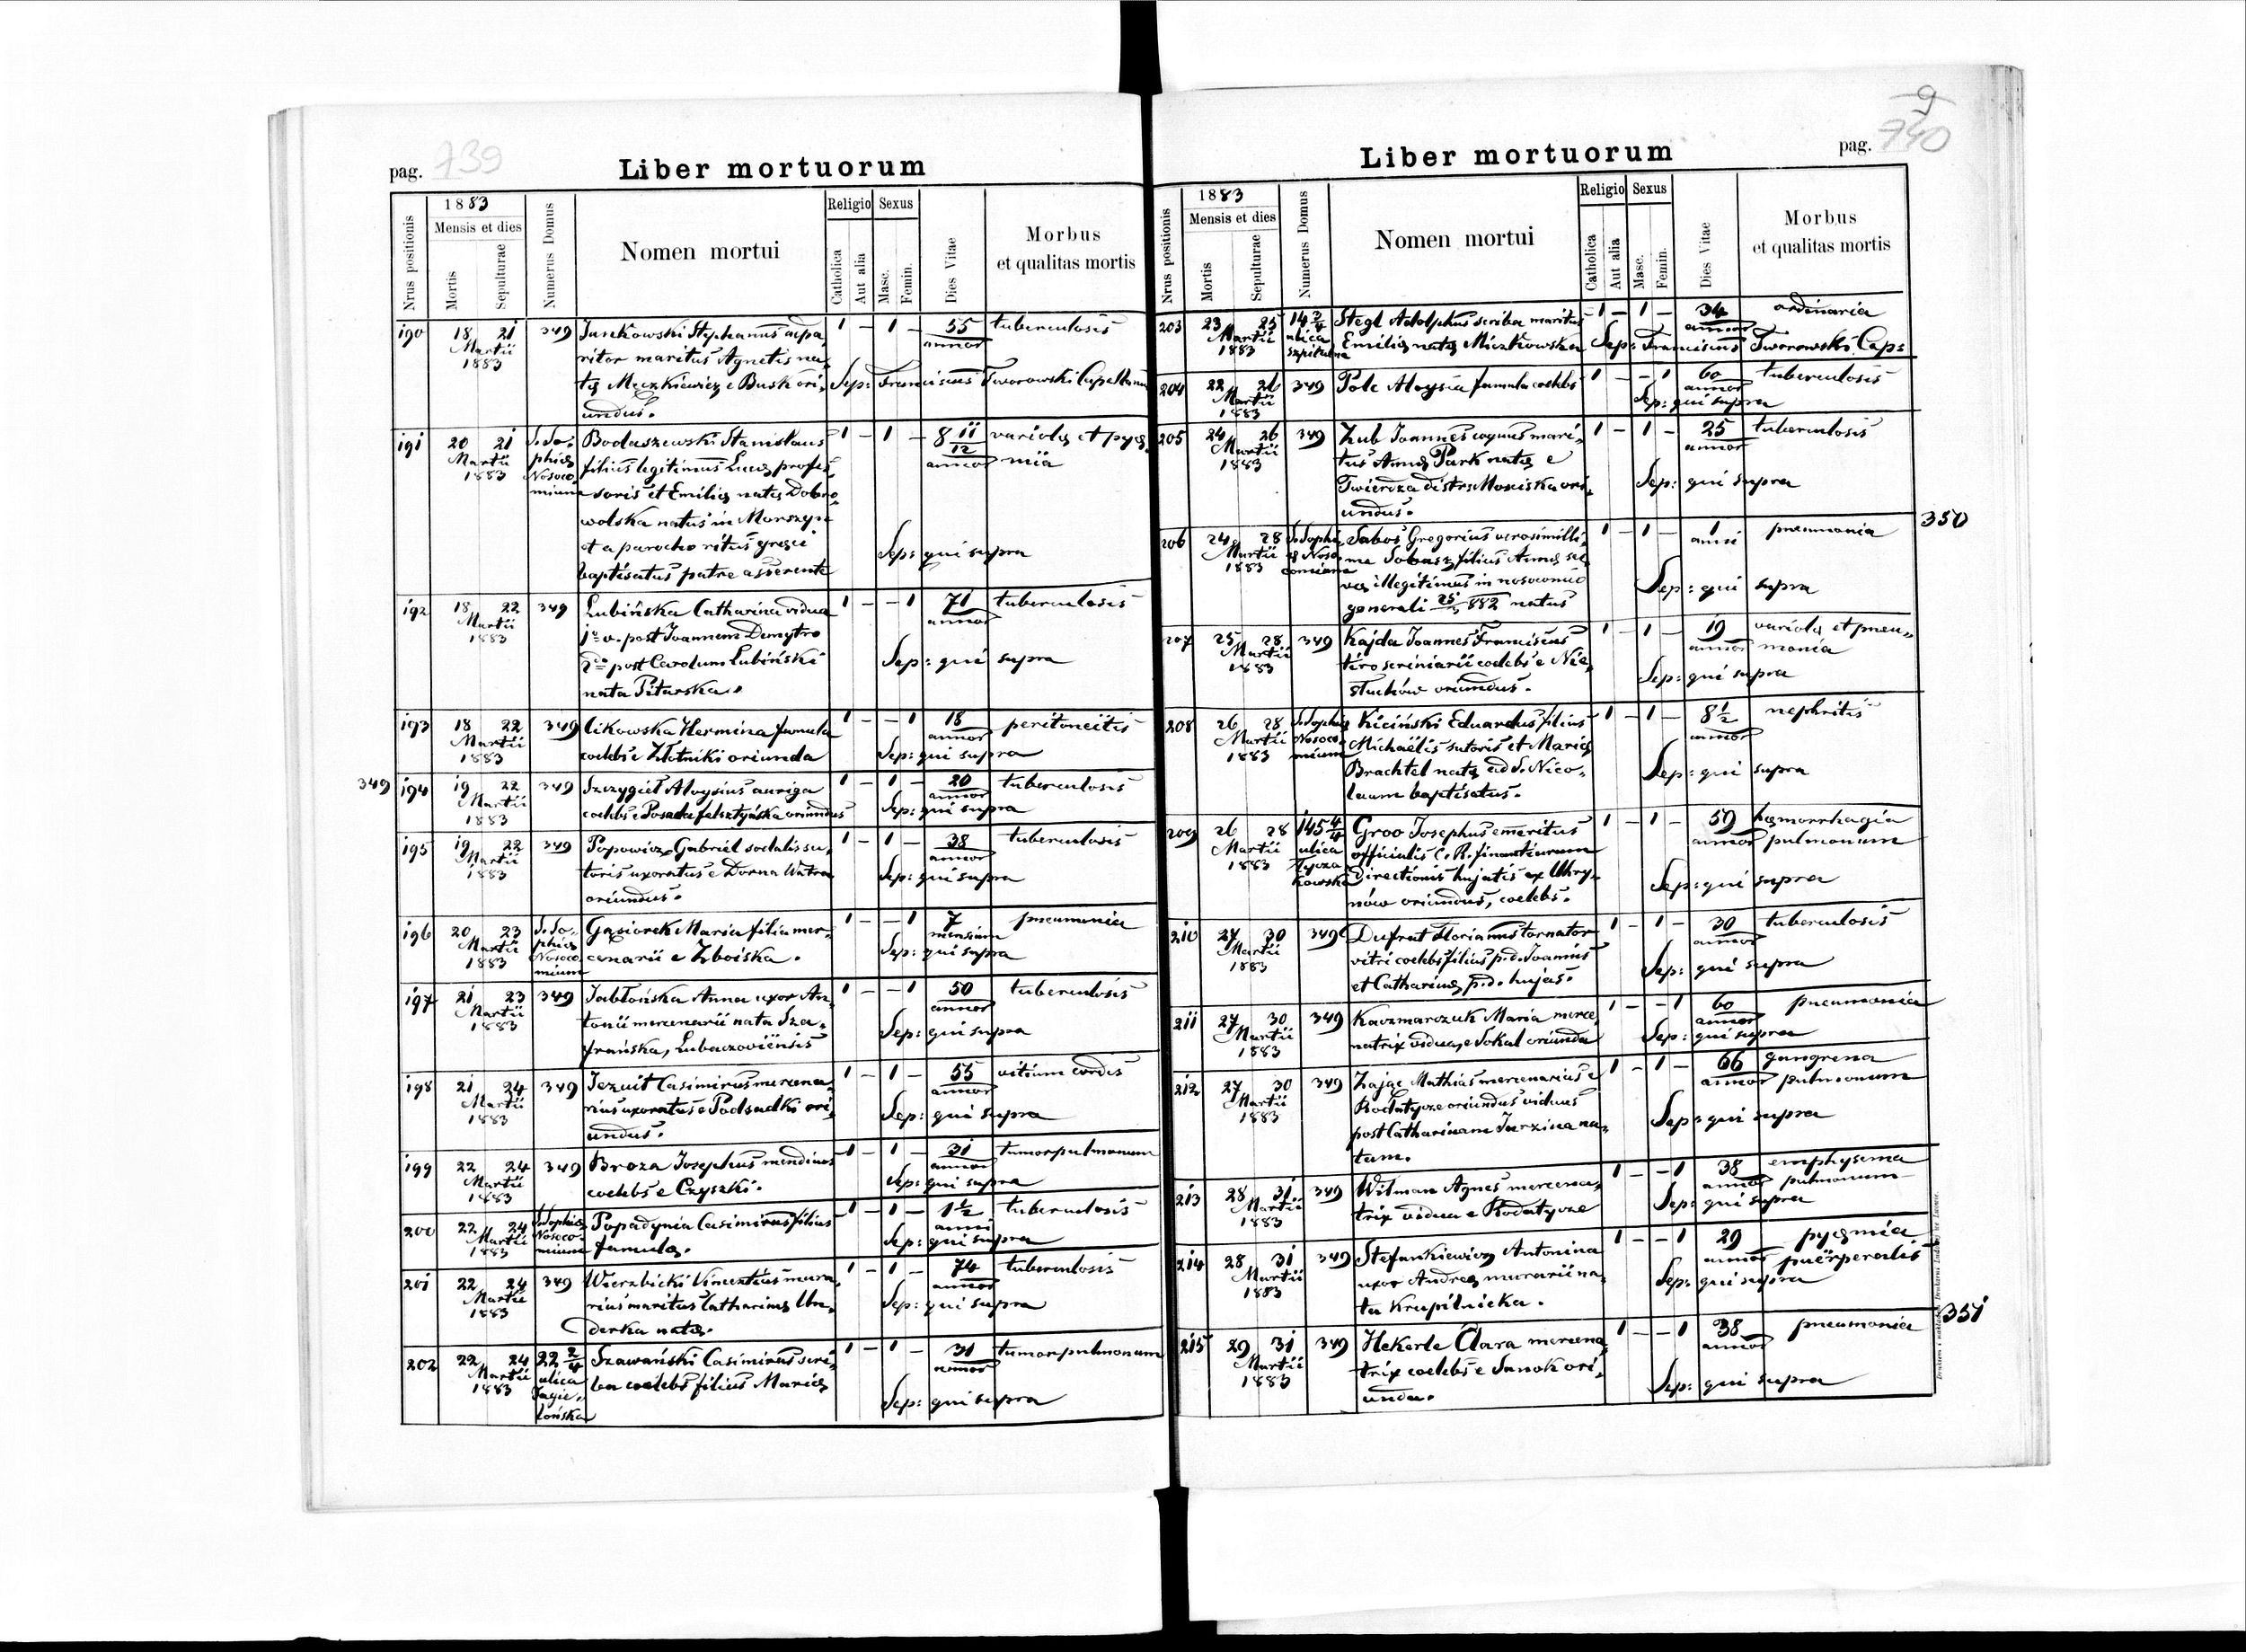 739
pag.
Liber mortuorum
Nrus positionis
1883
Mensis et dies
Mortis
Sepulturae
Numerus Domus
Nomen mortui
Religio
Catholica
Aut alia
Sexus
Masc.
Femin.
Dies Vitae
Morbus
et qualitas mortis
190 18 21 349 Juszkowski Stephanus adpa- 1 - 1 - 55 tuberculosis
Martii ritor maritus Agnetis na- annor
1883 tę Męczkiewicz e Busk ori- Sep: Franciscus Tworowski Capellanus
undus.
191 20 21 S. So- Bodaszewski Stanislaus 1 - 1 - 8 11/12 variolę et pyę-
Martii phię filius legitimus Lucę profes- annor mia
1883 Nosoco- soris et Emilię natę Dobro-
mium wolska natus in Morszyn
et a parocho ritus gręci Sep: qui supra
baptisatus patre asserente
192 18 22 349 Lubińska Catharina vidua 1 - - 1 71 tuberculosis
Martii 1o v. post Joannem Demytro annor
1883 2do post Carolum Lubiński Sep: qui supra
nata Piturska.
193 18 22 349 Cikowska Hermina famula 1 - - 1 18 peritoneitis
Martii annor
1883 coelebs e Złotniki oriunda Sep: qui supra
349 194 19 22 349 Szczygieł Aloysius auriga 1 - 1 - 20 tuberculosis
Martii annor
1883 coelebs e Posada felsztyńska oriundus Sep: qui supra
195 19 22 349 Popowicz Gabriel sodalis su- 1 - 1 - 38 tuberculosis
Martii toris uxoratus e Dorna Watra annor
1883 oriundus. Sep: qui supra
196 20 23 S. So- Gąsiorek Maria filia mer- 1 - - 1 7 pneumonia
Martii phię mensium
1883 Nosoco- cenarii e Zboiska. Sep: qui supra
mium
197 21 23 349 Jabłońska Anna uxor An- 1 - - 1 50 tuberculosis
Martii tonii mercenarii nata Sza- annor
1883 frańska, Lubaczoviensis Sep: qui supra
198 21 24 349 Jezuit Casimirus mercena- 1 - 1 - 55 vitium cordis
Martii rius uxoratus e Podsadki ori- annor
1883 undus. Sep: qui supra
199 22 24 349 Broza Josephus mendicus 1 - 1 - 31 tumor pulmonum
Martii annor
1883 coelebs e Czyszki. Sep: qui supra
200 22 24 S. Sophię Popadynia Casimirus filius 1 - 1 - 1½ tuberculosis
Martii Nosoco- anni
1883 mium famulę. Sep: qui supra
201 22 24 349 Wierzbicki Vincentius mura- 1 - 1 - 74 tuberculosis
Martii rius maritus Catharinę Un- annor
1883 derka natę. Sep: qui supra
202 22 24 22 2/4 Szawański Casimirus scri- 1 - 1 - 31 tumor pulmonum
Martii ulica ba coelebs filius Marię annor
1883 Jagie- Sep: qui supra
lońska
9
740
Liber mortuorum
pag.
Nrus positionis
1883
Mensis et dies
Mortis
Sepulturae
Numerus Domus
Nomen mortui
Religio
Catholica
Aut alia
Sexus
Masc.
Femin.
Dies Vitae
Morbus
et qualitas mortis
203 23 25 14 2/4 Stegl Adolphus scriba maritus 1 - 1 - 34 ordinaria
Martii ulica annor
1883 szpitalna Emilię natę Miczkowska Sep: Franciscus Tworowski Cap:
204 22 26 349 Pole Aloysia famula coelebs 1 - - 1 60 tuberculosis
Martii annor
1883 Sep: qui supra
205 24 26 349 Zub Joannes coquus mari- 1 - 1 - 25 tuberculosis
Martii tus Annę Park natę e annor
1883 Twierdza distr: Mosciska ori- Sep: qui supra
undus.
350
206 24 28 S. Sophi- Sabos Gregorius verosimilli- 1 - 1 - 1 pneumonia
Martii ę Noso- me Sobasz filius Annę ser- anni
1883 comium vę illegitimus in nosocomio Sep: qui supra
generali 882 natus
207 25 28 349 Kajda Joannes Franciscus 1 - 1 - 19 variolę et pneu-
Martii tiro scriniarii coelebs e Nie- annor monia
1883 stuchów oriundus. Sep: qui supra
208 26 28 S. Sophię Kiciński Eduardus filius 1 - 1 - 8½ nephritis
Martii Nosoco- Michaëlis sutoris et Marię annor
1883 mium Brachtel natę ad S. Nico- Sep: qui supra
laum baptisatus.
209 26 28 145 4/4 Groo Josephus emeritus 1 - 1 - 59 hęmorrhagia
Martii ulica officialis C. R. finantiarum annor pulmonum
1883 Łycza- Directionis hujatis ex Uhry- Sep: qui supra
kowska nów oriundus, coelebs.
210 27 30 349 Dufrat Florianus tornator 1 - 1 - 30 tuberculosis
Martii vitri coelebs filius p.d. Joannis annor
1883 et Catharinę p.d. hujas. Sep: qui supra
211 27 30 349 Kaczmarczuk Maria merce- 1 - - 1 60 pneumonia
Martii annor
1883 natrix vidua, e Sokal oriunda Sep: qui supra
212 27 30 349 Zając Mathias mercenarius e 1 - 1 - 66 gangrena
Martii Rodatycze oriundus viduus annor pulmonum
1883 post Catharinam Jarzina na- Sep: qui supra
tam.
213 28 31 349 Witman Agnes mercena- 1 - - 1 38 emphysema
Martii annor pulmonum
1883 trix vidua e Rodatycze Sep: qui supra
214 28 31 349 Stefankiewicz Antonina 1 - - 1 29 pyęmia
Martii uxor Andreę murarii na- annor puërperalis
1883 ta Krupilnicka. Sep: qui supra
351
215 29 31 349 Hekerle Clara mercena- 1 - - 1 38 pneumonia
Martii trix coelebs e Sanok ori- annor
1883 unda. Sep: qui supra